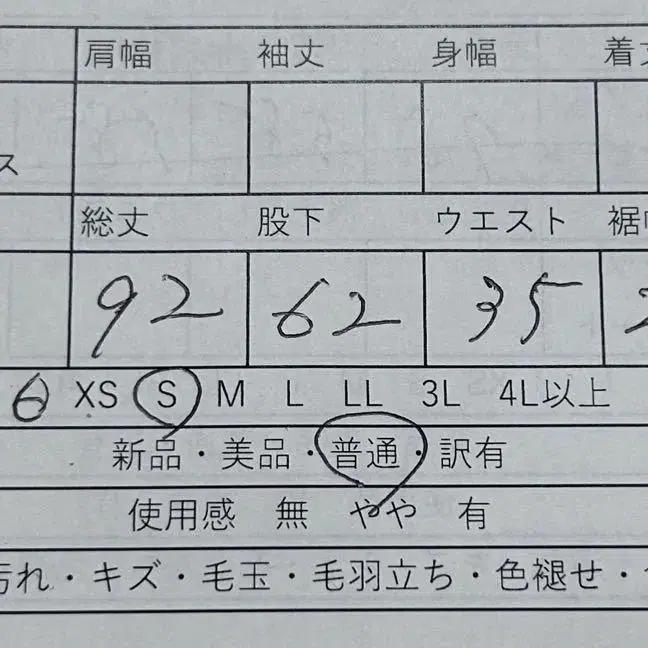 肩幅 袖丈 身幅 着
ス
総丈 股下 ウエスト 裾
92 62 35 2
6 XS S M L LL 3L 4L以上
新品・美品・普通・訳有
使用感 無 やや 有
汚れ・キズ・毛玉・毛羽立ち・色褪せ・